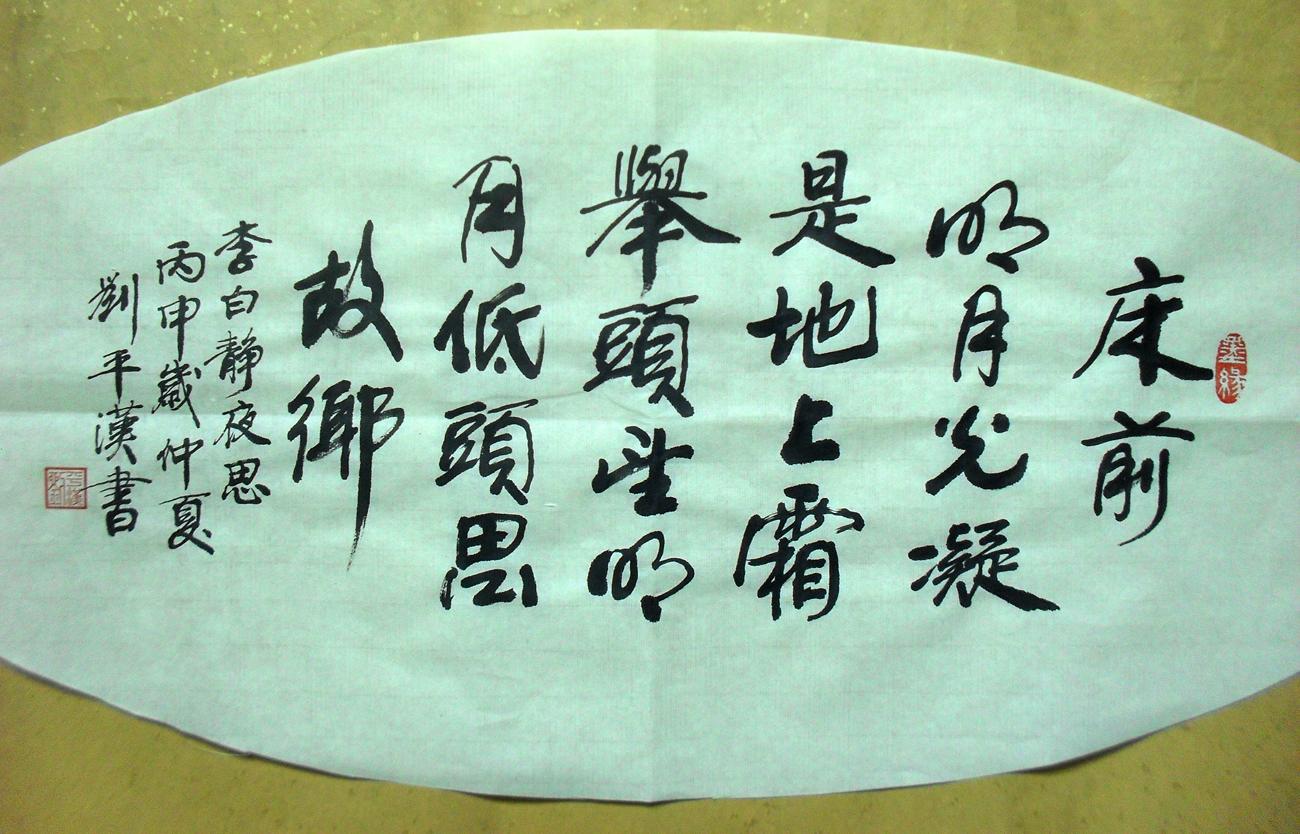 墨緣
床前
明月光凝
是地上霜
舉頭望明
月低頭思
故鄉
李白靜夜思
丙申歲仲夏
劉平漢書